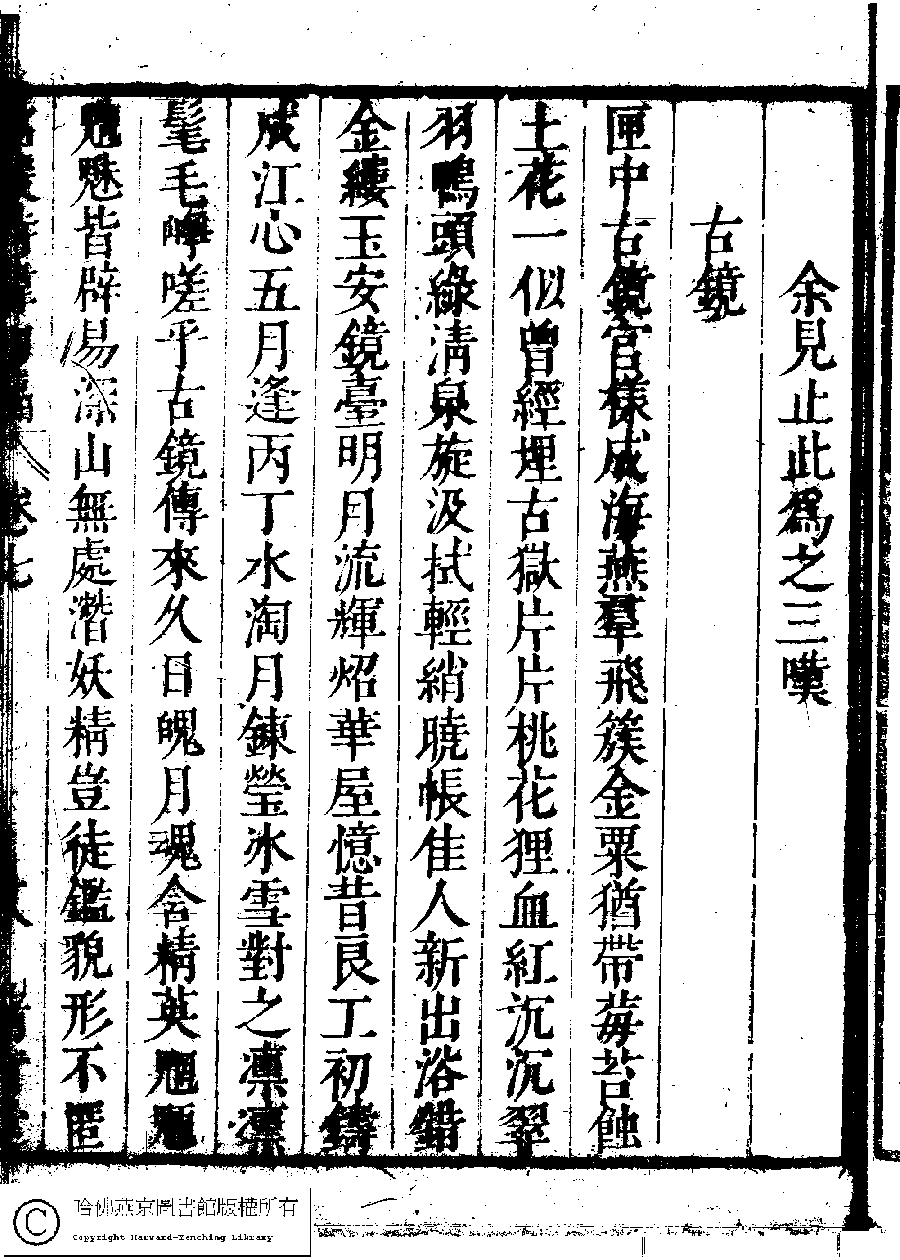 余見止此爲之三嘆
古鏡
匣中古鏡官樣成海燕羣飛簇金粟猶帶莓苔蝕
土花一似曾經埋古獄片片桃花狸血紅沉沉翠
羽鴨頭綠清泉旋汲拭輕綃曉帳佳人新出浴錯
金縷玉安鏡臺明月流輝炤華屋憶昔良工初鑄
成江心五月逢丙丁水淘月鍊瑩氷雪對之凛凛
髦毛嗟乎古鏡傳來久日魄月魂含精英魍魎
魑魅皆辟易深山無處濳妖精豈徒鑑貌形不匿
卷七
哈佛燕京圖書館版權所有
Copyright Harvard-Yenching Library